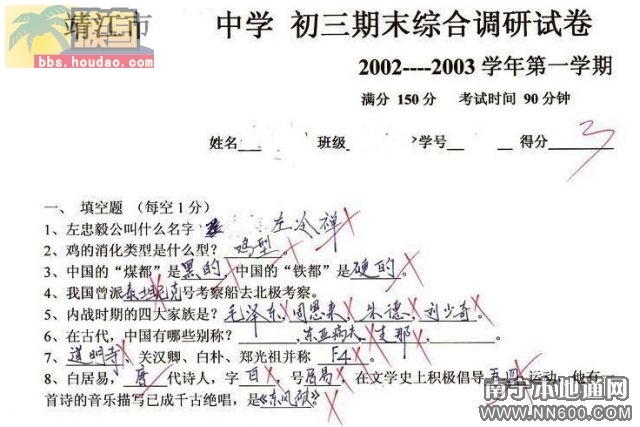 靖江市 中学 初三期末综合调研试卷
猴岛
bbs.houdao.com
2002----2003 学年第一学期
满分 150 分 考试时间 90 分钟
姓名 班级 学号 得分 3
一、 填空题 （每空 1 分）
1、左忠毅公叫什么名字 左冷禅
2、鸡的消化类型是什么型？ 鸡型。
3、中国的“煤都”是黑的，中国的“铁都”是硬的。
4、我国曾派泰坦尼克号考察船去北极考察。
5、内战时期的四大家族是？毛泽东、周恩来、朱德、刘少奇。
6、在古代，中国有哪些别称？ 、东亚病夫、支那。
7、道明寺、关汉卿、白朴、郑光祖并称 F4。
8、白居易，唐代诗人，字白，号居易，在文学史上积极倡导五四运动，他有一
首诗的音乐描写已成千古绝唱，是《东风破》。
南宁本地通网
WWW.NN600.COM